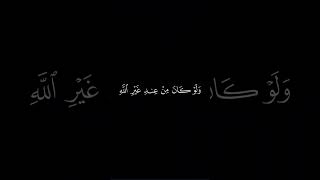 وَلَوْ كَانَ مِنْ عِندِ غَيْرِ ٱللَّهِ
وَلَوْ كَا غَيْرِ ٱللَّهِ